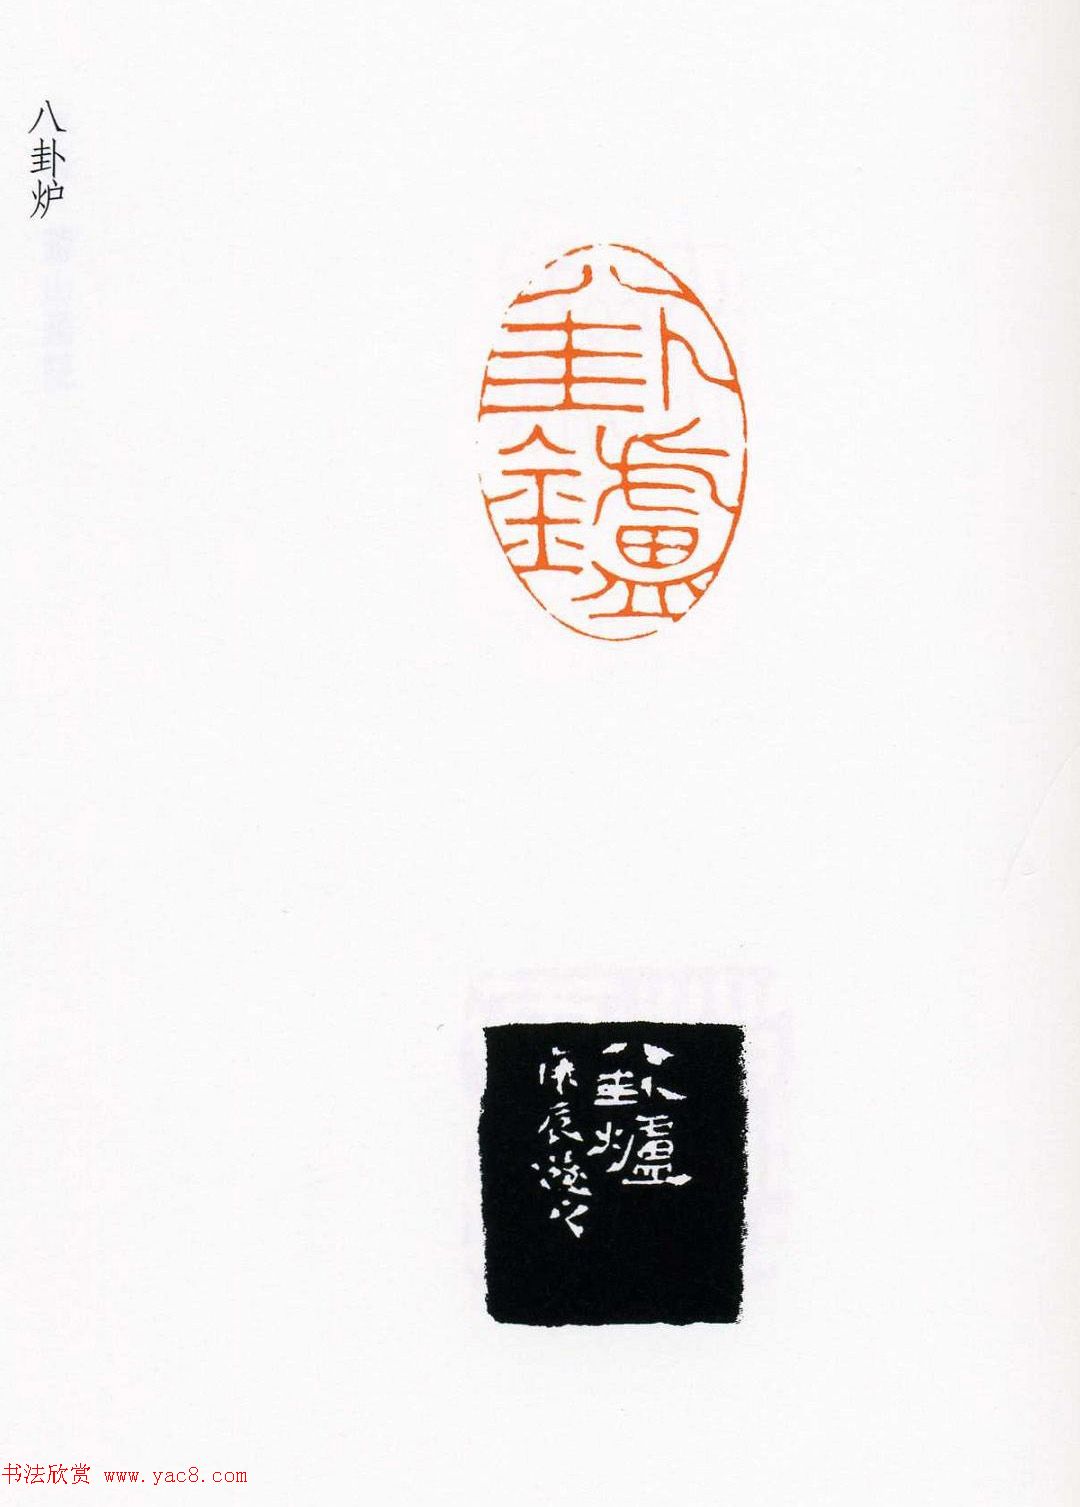 八卦炉
八卦鑪
八卦爐
庚辰蕩之
书法欣赏 www.yac8.com